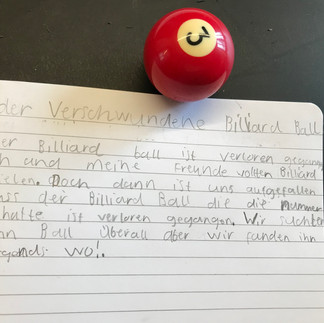 3
der Verschwundene Billiard Ball
er Billiard ball ist verloren gegang
ch und meine Freunde wollten Billiard
ielen. Doch dann ist uns aufgefallen
ass der Billiard Ball die die nummer
hatte ist verloren gegangen. Wir suchten
nn Ball überall aber wir fanden ihn
rgends wo!.